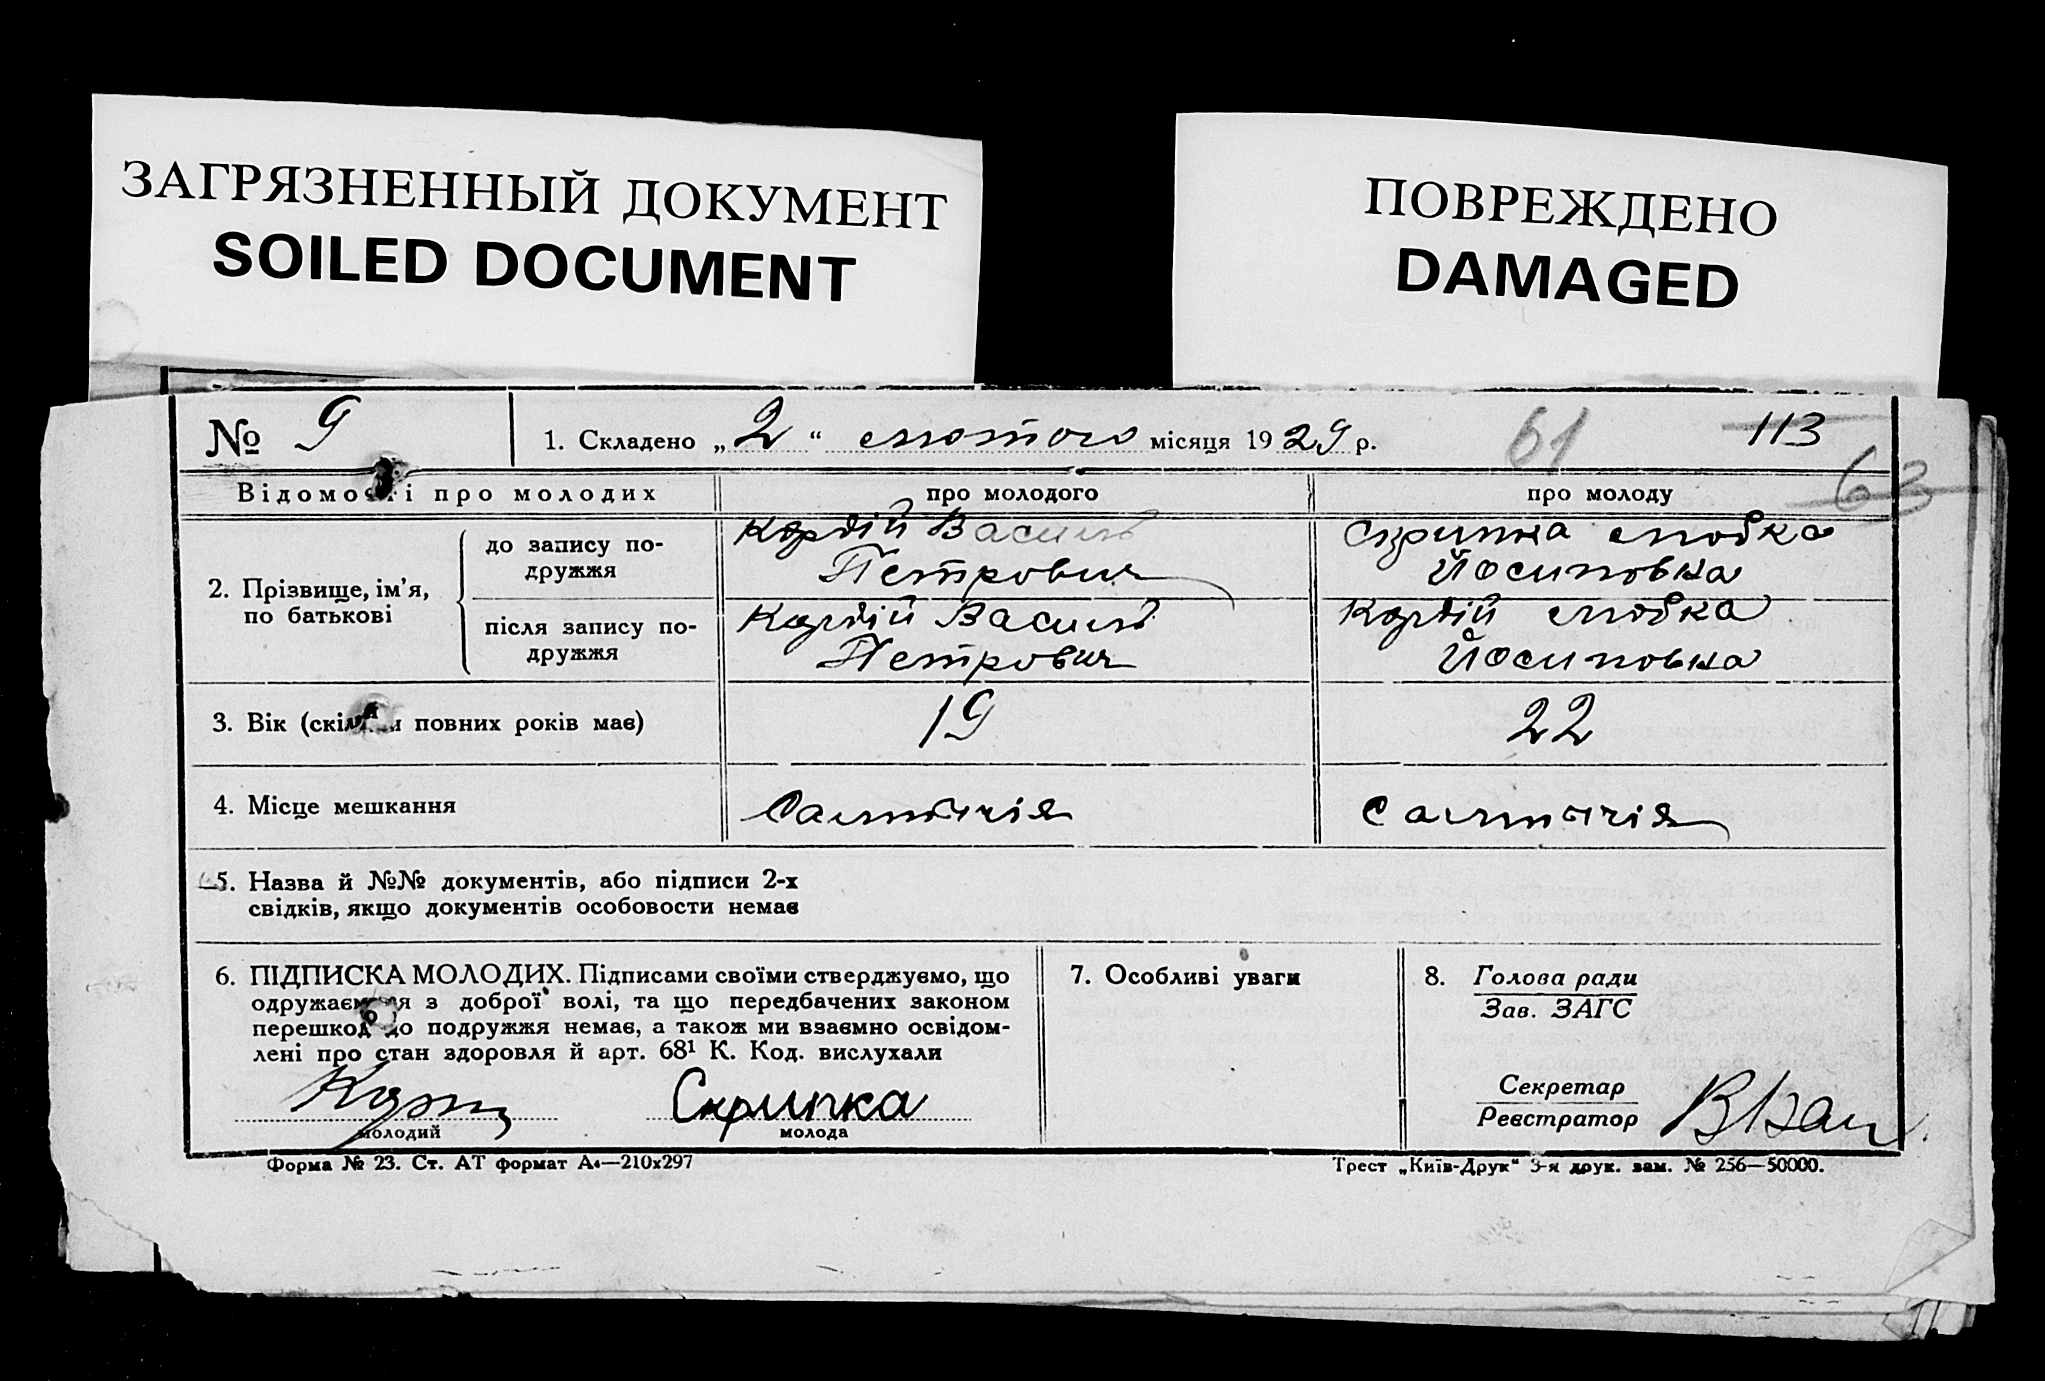 ЗАГРЯЗНЕННЫЙ ДОКУМЕНТ
SOILED DOCUMENT
ПОВРЕЖДЕНО
DAMAGED
№ 9
1. Складено „2“ лютого місяця 1929 р.
61
113
63
Відомості про молодих
про молодого
про молоду
2. Прізвище, ім’я,
по батькові
до запису по-
дружжя
Кордій Василь
Петрович
Скрипка Любка
Йосиповна
після запису по-
дружжя
Кордій Василь
Петрович
Кордій Любка
Йосиповна
3. Вік (скільки повних років має)
19
22
4. Місце мешкання
Салтичія
Салтичія
5. Назва й №№ документів, або підписи 2-х
свідків, якщо документів особовости немає
6. ПІДПИСКА МОЛОДИХ. Підписами своїми стверджуємо, що
одружаємося з доброї волі, та що передбачених законом
перешкод до подружжя немає, а також ми взаємно освідом-
лені про стан здоровля й арт. 68¹ К. Код. вислухали
Скрипка
молодий
молода
7. Особливі уваги
8. Голова ради
Зав. ЗАГС
Секретар
Реєстратор
Форма № 23. Ст. АТ формат А₄—210х297
Трест „Київ-Друк“ 3-я друк. зам. № 256—50000.